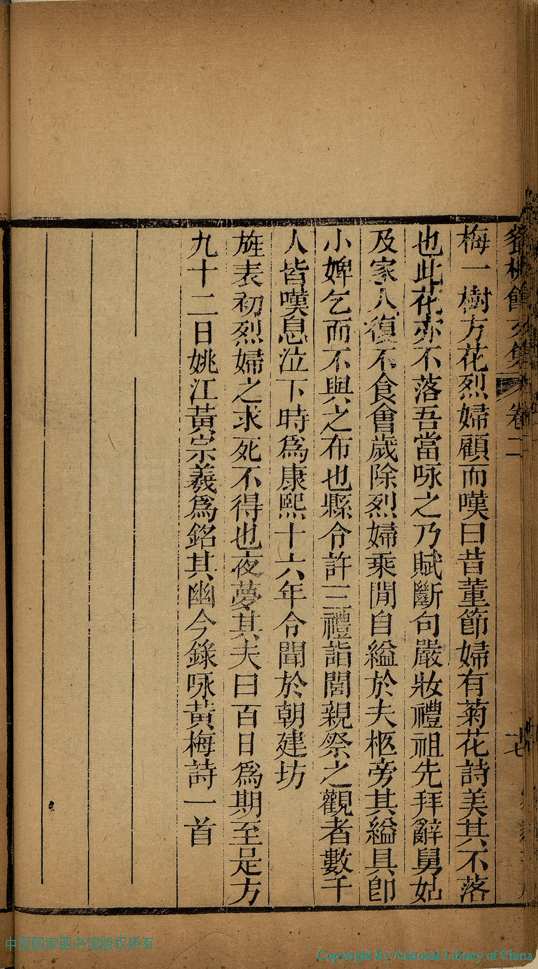 卷二
梅一樹方花烈婦顧而嘆曰昔董節婦有菊花詩美其不落
也此花亦不落吾當咏之乃賦斷句嚴妝禮祖先拜辭舅姑
及家人復不食會歲除烈婦乘閒自縊於夫柩旁其縊具卽
小婢乞而不與之布也縣令許三禮詣閣親祭之觀者數千
人皆嘆息泣下時爲康熙十六年令聞於朝建坊
旌表初烈婦之求死不得也夜夢其夫曰百日爲期至是方
九十二日姚江黃宗羲爲銘其幽今錄咏黃梅詩一首
中国国家图书馆版权所有
Copyright By National Library of China